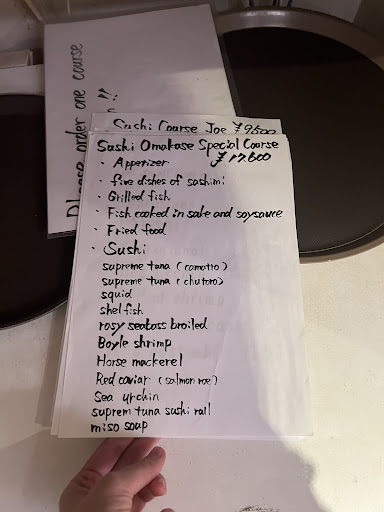 Please order one course !!
Sushi Course Joe ¥9600
Sushi Omakase Special Course
¥17,600
· Appetizer
· five dishes of sashimi
· Grilled fish
· Fish cooked in sake and soysauce
· Fried food
· Sushi
supreme tuna (comotto)
supreme tuna (chutoro)
squid
shelfish
rosy seabass broiled
Boyle shrimp
Horse mackerel
Red caviar (salmon roe)
Sea urchin
suprem tuna sushi rall
miso soup